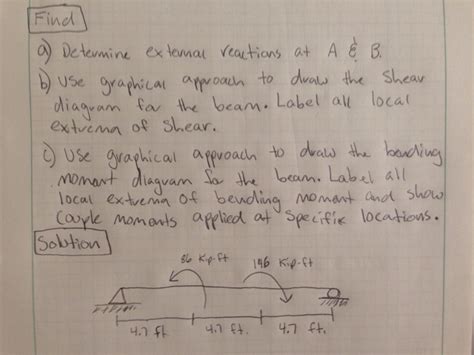 Find
a) Determine external reactions at A & B.
b) Use graphical approach to draw the Shear
diagram for the beam. Label all local
extrema of Shear.
c) Use graphical approach to draw the bending
moment diagram for the beam. Label all
local extrema of bending moment and show
Couple moments applied at Specific locations.
Solution
36 Kip-ft 146 Kip-ft
4.7 ft 4.7 ft. 4.7 ft.